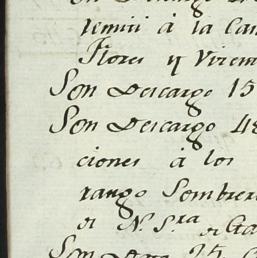 Son Descargo
remiti á la Can
Flores y Vicen
Son Descargo 15
Son Descargo 48
ciones á los
rango Sombrer
de N. S.ra de Gta
Son Data 25